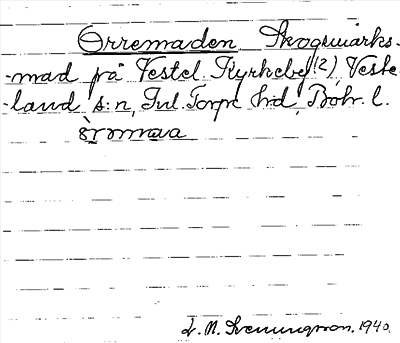 Orremaden Skogsmarks-
-mad på Vestel. Kyrkeby(2) Veste-
-land s:n, Inl. Torpe hd, Boh. l.
òrrmaa
1940.